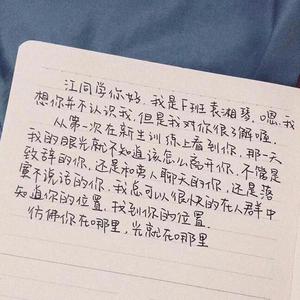 江同学你好.我是F班袁湘琴.嗯.我
想你并不认识我,但是我对你很了解喔.
从第一次在新生训练上看到你,那一天
我的眼光就不知道该怎么离开你,不管是
致辞的你,还是和旁人聊天的你,还是落
寞不说话的你.我总可以很快的在人群中
知道你的位置.找到你的位置.
彷佛你在哪里,光就在哪里